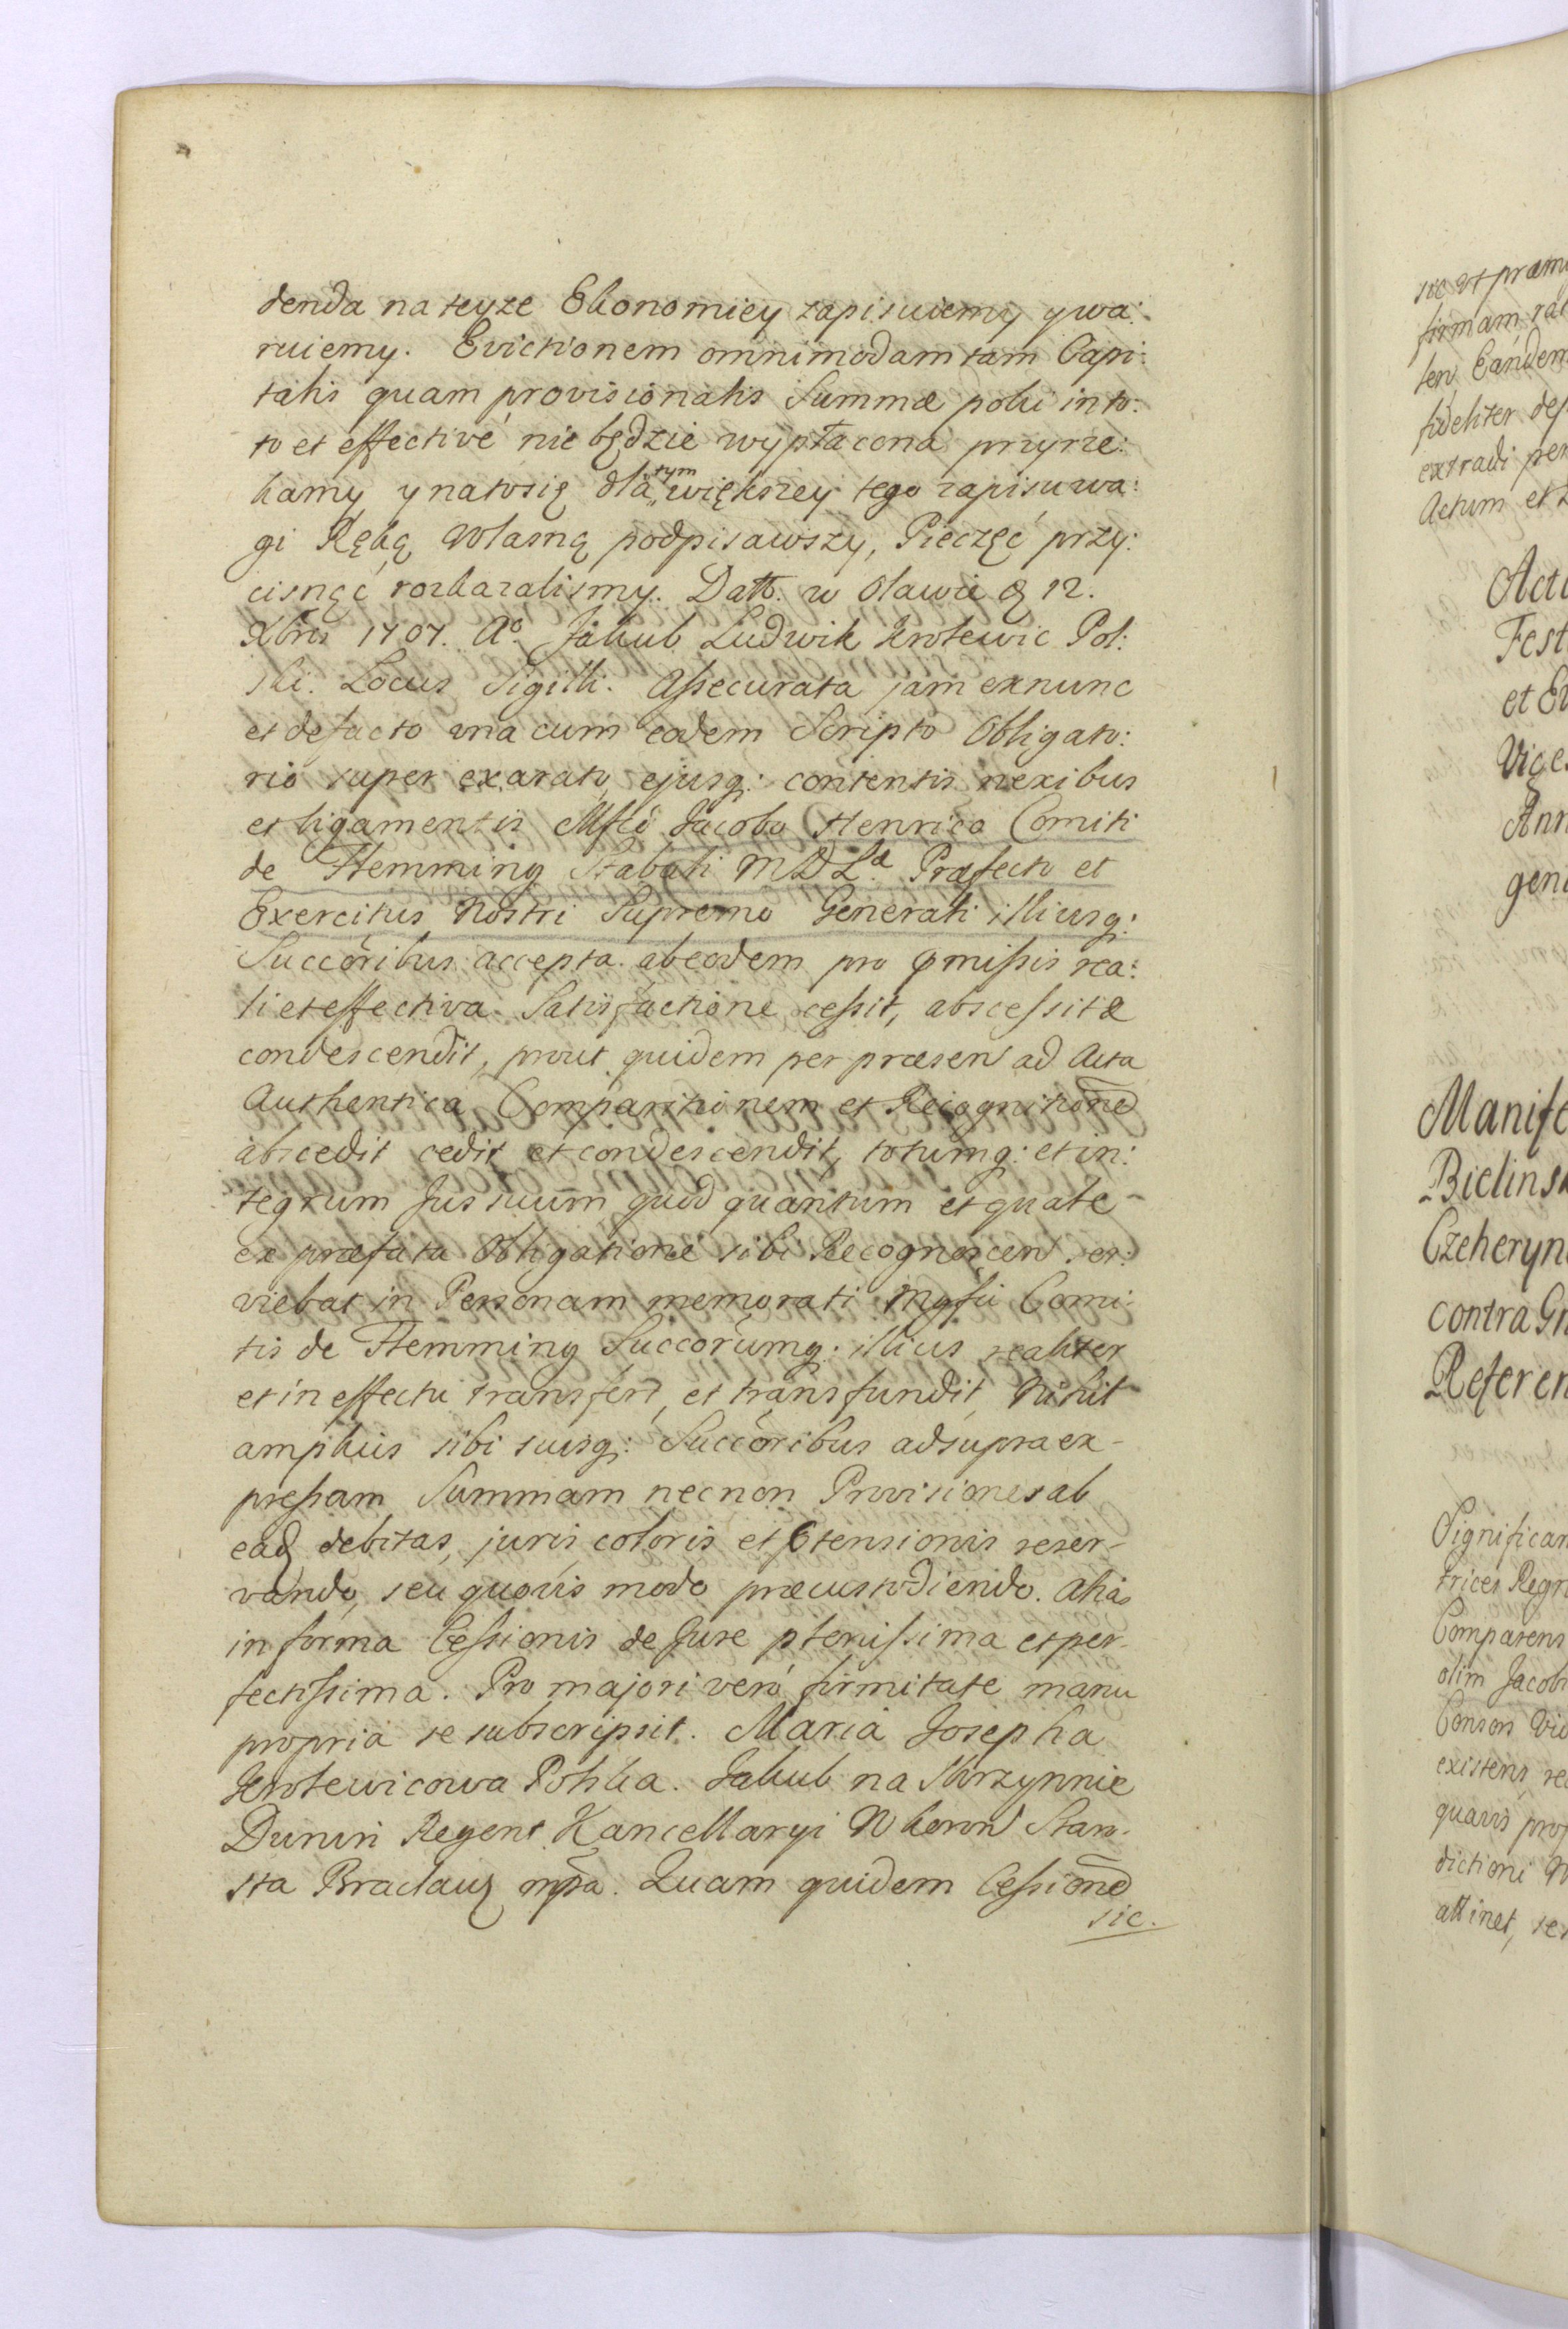 denda na teyze Ekonomiey zapisuiemy y wa:
ruiemy. Evictionem omnimodam tam Capi:
talis quam provisionalis Summæ poki in to:
to et effectivé nie będzie wypłacona przyrze:
kamy y na to się dla tym większey tego zapisu wa:
gi Ręką własną podpisawszy, Pieczęć przy:
cisnąć rozkazalismy. Datt. w Oławie 12.
Xbris 1707. Aº. Jakub Ludwik Krolewic Pol:
ski. Locus Sigilli. Assecurata jam exnunc
et defacto una cum eodem Scripto Obligato:
rio super exarato, ejusq: contentis nexibus
et ligamentis Mfco Jacobo Henrico Comiti
de Flemming Stabuli M D L.æ Præfecto et
Exercitus Nostri Supremo Generali illiusq:
Succoribus accepta ab eodem pro pmissis rea:
li et effectiva Satisfactione cessit, abscessit &
condescendit, prout quidem per præsen ad Acta
Authentica Comparitionem et Recognitione
abscedit cedit et condescendit, totumq: et in:
tegrum Jus suum quod quantum et quale
ex præfata Obligatione sibi Recognoscen ser:
viebat in Personam memorati Mgfci Comi:
tis de Flemming Succorumq: illius realiter
et in effectu transfert, et transfundit, Nihil
amplius sibi suisq: Succoribus ad supra ex-
pressam Summam necnon Provisiones ab
eadq debitas, juris, coloris et ptensionis reser-
vando, seu quovis modo præcustodiendo. Alias
in forma Cessionis de Jure plenissima et per-
fectissima. Pro majori vero firmitate manu
propria se subscripsit. Maria Josepha
Krolewicowa Polska. Jakub na Skrzynnie
Dunin Regent Kancellaryi W Koron Staro-
sta Braclaw mpa. Quam quidem Cessione
sic.
sic ut præm
firmam ra
ten Eandem
fideliter des
extradi per
Actum et
Actu
Fest
et
Vige
Ann
gen
Manife
Bielinsk
Czeheryn
contra G
Referen
Significan
trices Regn
Comparens
olim Jacob
Consors Vid
existens, re
quavis prop
dictioni
attinet, se